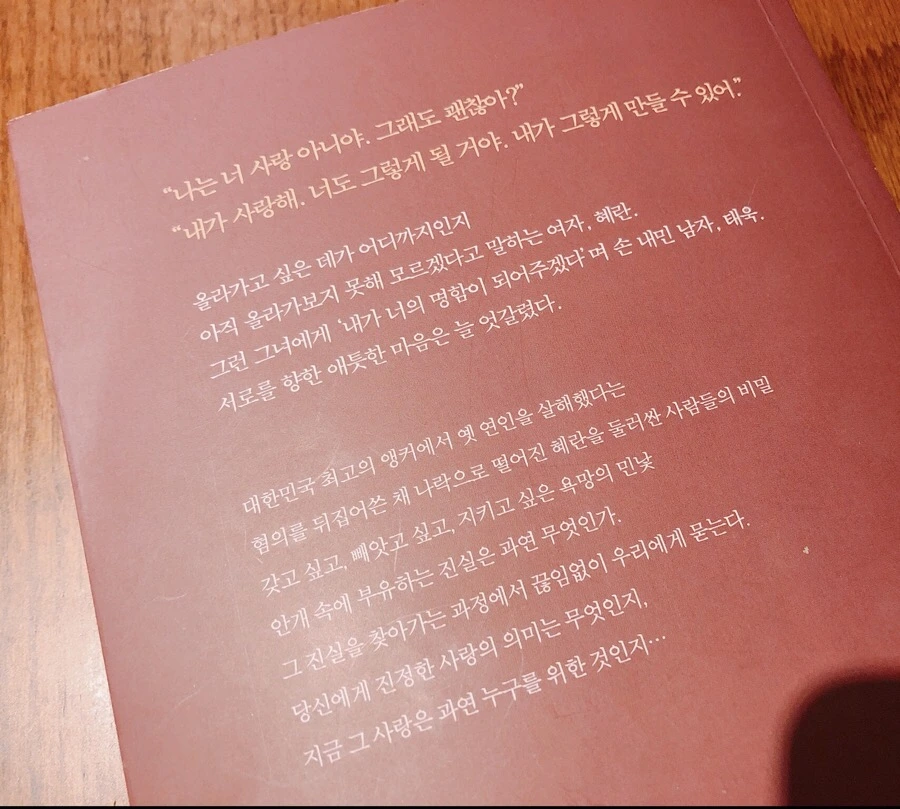 “나는 너 사랑 아니야. 그래도 괜찮아?”
“내가 사랑해. 너도 그렇게 될 거야. 내가 그렇게 만들 수 있어.”
올라가고 싶은 데가 어디까지인지
아직 올라가보지 못해 모르겠다고 말하는 여자, 혜란.
그런 그녀에게 ‘내가 너의 명함이 되어주겠다’며 손 내민 남자, 태욱.
서로를 향한 애틋한 마음은 늘 엇갈렸다.
대한민국 최고의 앵커에서 옛 연인을 살해했다는
혐의를 뒤집어쓴 채 나락으로 떨어진 혜란을 둘러싼 사람들의 비밀
갖고 싶고, 빼앗고 싶고, 지키고 싶은 욕망의 민낯
안개 속에 부유하는 진실은 과연 무엇인가.
그 진실을 찾아가는 과정에서 끊임없이 우리에게 묻는다.
당신에게 진정한 사랑의 의미는 무엇인지,
지금 그 사랑은 과연 누구를 위한 것인지…